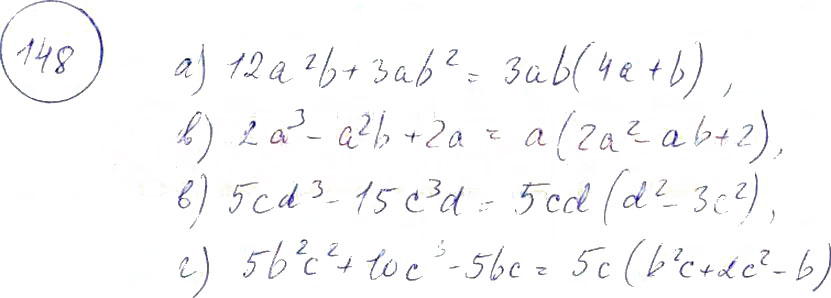 148
а) 12a²b + 3ab² = 3ab(4a + b),
в) 2a³ - a²b + 2a = a(2a² - ab + 2),
в) 5cd³ - 15c³d = 5cd(d² - 3c²),
г) 5b²c² + 10c³ - 5bc = 5c(b²c + 2c² - b)